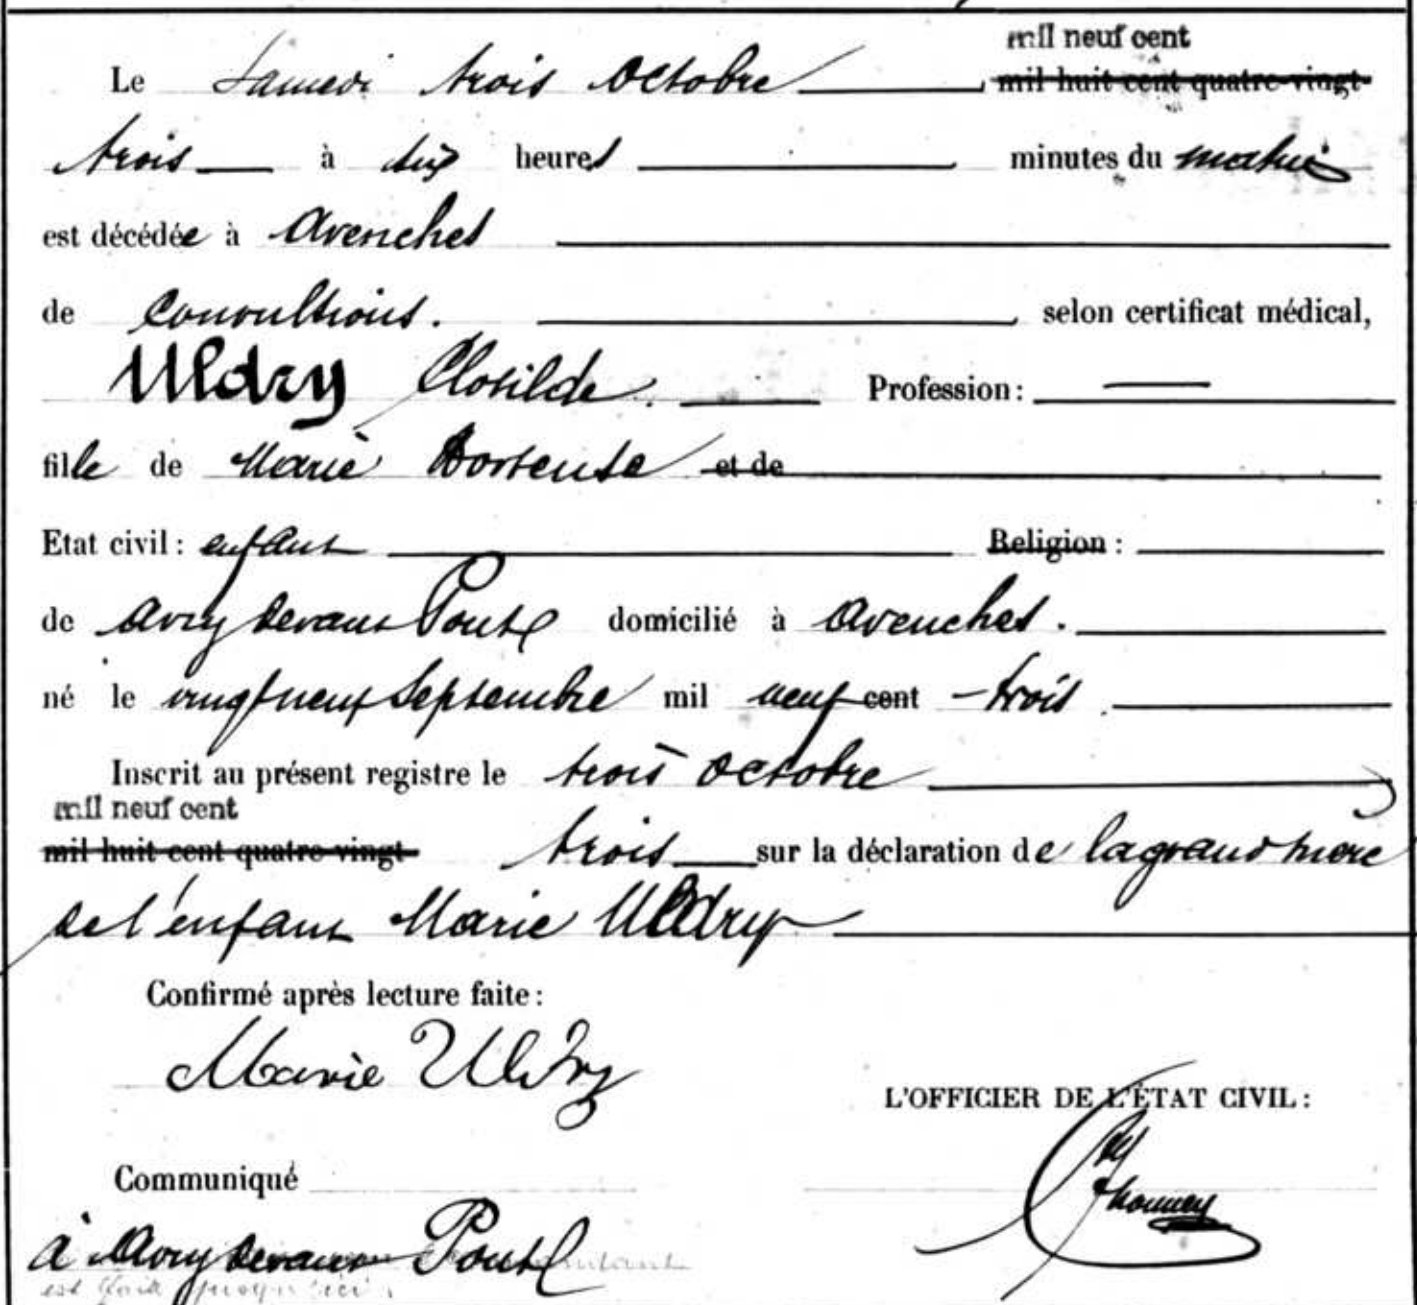 mil neuf cent
Le Samedi trois Octobre mil huit cent quatre-vingt
trois à dix heures minutes du matin
est décédée à Avenches
de Convultions. selon certificat médical,
Uldry Clotilde. Profession :
fille de Marie Hortense et de
Etat civil : enfant Religion :
de Avry devant Pont domicilié à Avenches.
né le vingt neuf Septembre mil neuf cent - trois
Inscrit au présent registre le trois Octobre
mil neuf cent
mil huit cent quatre-vingt trois sur la déclaration de la grand mère
de l'enfant Marie Uldry
Confirmé après lecture faite :
Marie Uldry
L'OFFICIER DE L'ÉTAT CIVIL :
Communiqué
à Avry devant Pont
est fait jusqu'ici.